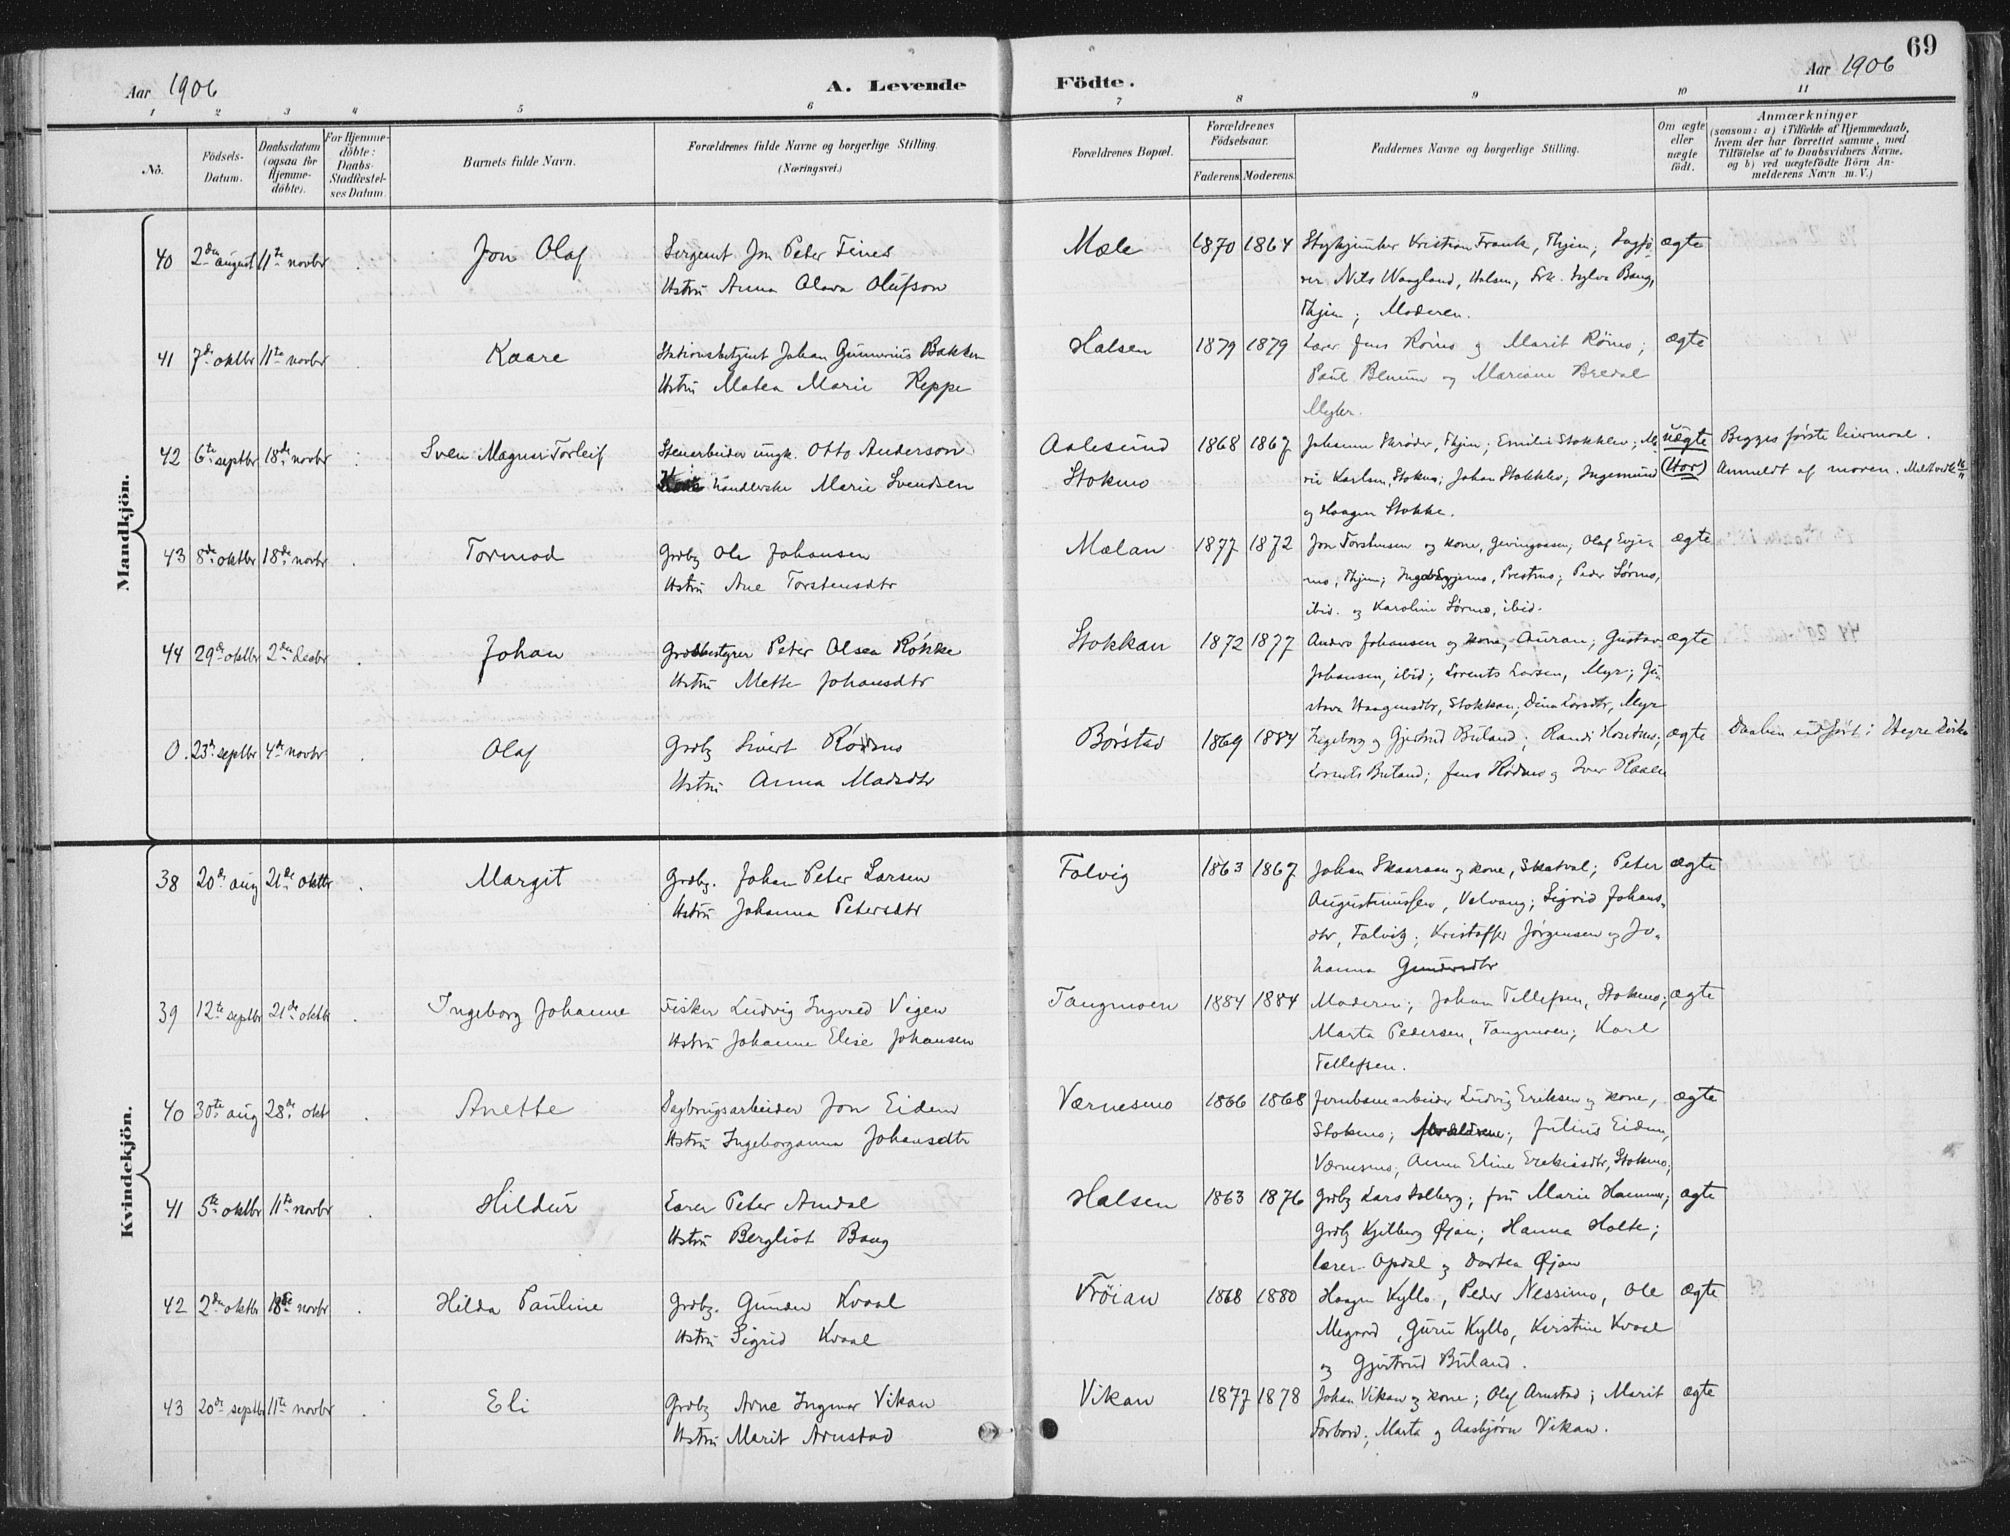 69
Aar 1906
A. Levende Födte.
Aar 1906
1 2 3 4 5 6 7 8 9 10 11
No.
Födsels-Datum.
Daabsdatum (ogsaa for Hjemme-döbte).
For Hjemme-döbte: Daabs-Stadfæstel-ses Datum.
Barnets fulde Navn.
Forældrenes fulde Navne og borgerlige Stilling.
(Næringsvei.)
Forældrenes Bopæl.
Forældrenes Födselsaar.
Faderens. Moderens.
Faddernes Navne og borgerlige Stilling.
Om ægte eller uægte födt.
Anmærkninger
(saasom: a) i Tilfælde af Hjemmedaab,
hvem der har forrettet samme, med
Tilföielse af to Daabsvidners Navne.
og b) ved uægtefödte Börn An-
melderens Navn m. V.)
Mandkjön.
40 2den august 11te novbr Jon Olaf Sergent Jon Peter Fines Mæle 1870 1864 Kristian Frank, Thjem; Sagfö- ægte
Hstru Anna Olava Olufson rer Nils Waagland, Halsen, Frk. Sylva Bang,
Thjem; Moderen.
41 7de oktbr 11te novbr Kaare Johan Gunnerius Bakken Halsen 1879 1879 Lærer Jens Römo og Marit Römo; ægte
Hstru Matea Marie Reppe Paul og Mariane Bredal
42 6te septbr 18de novbr Sven Magnus Torleif Stenarbeider ungk. Otto Anderson Aalesund 1868 1867 Johanna Skrøder, Thjem; Emilie Stokkan; Ma uægte Begges første leiermaal.
handlerske Marie Svendsen Stokmo rie Karlsen, Stokmo; Johan Stokkan; Ingemund (Hor) Anmeldt af moren.
og Haagen Stokke.
43 8de oktbr 18de novbr Tormod Grdbr Ole Johansen Mælan 1877 1872 Jon Torstensen og kone, Gevingaasen; Olaf ægte
Hstru Ane Torstensdtr mo, Thjem; Prestmo; Peder Sørmo,
ibid. og Karoline Sørmo, ibid.
44 29de oktbr 2den decbr Johan Grdbestyrer Peter Olsen Røkke Stokkan 1872 1877 Anders Johansen og kone, Auran; Gustav ægte
Hstru Mette Johansdtr Johansen, ibid; Lorents Larsen, Myr; Gu-
stava Haagensdtr, Stokkan; Dina Larsdtr, Myr
0. 23de septbr 4de novbr Olaf Grdbr Sivert Rødmo Børstad 1869 1884 Ingeborg og Gjertrud Buland; Randi Hosetmo; ægte Daaben udført i Hegre kirke
Hstru Anna Madsdtr Lorents Buland; Jens Rødmo og Iver Raaen
Kvindekjön.
38 20de aug 21de oktbr Margit Grdbr. Johan Peter Larsen Folvig 1863 1867 Johan Skaaraan og kone, Skatval; Peter ægte
Hstru Johanna Petersdtr Augustinussen, Velvang; Sigrid Johans-
dtr, Folvig; Kristoffer Jørgensen og Jo-
hanna Gundersdtr
39 12te septbr 21de oktbr Ingeborg Johanne Fisker Ludvig Ingvald Vigen Tangmoen 1884 1884 Moderen; Johan Tellefsen, Stokmo; ægte
Hstru Johanne Elise Johansen Marta Pedersen, Tangmoen; Karl
Tellefsen.
40 30te aug 28de okt Anette Sagbrugsarbeider Jon Eidem Værnesmo 1866 1868 Jernbanearbeider Ludvig Eriksen og kone, ægte
Hstru Ingeborganna Johansdtr Stokmo; Forældrene; Julius Eidem,
Værnesmo; Anna Eline Erekiasdtr, Stokmo;
41 5te oktbr 11te novbr Hildur Lærer Peter Amdal Halsen 1863 1876 Grdbr Lars Solberg; fru Marie Hammer; ægte
Hstru Bergliot Bang Grdbr Kjelberg Øjan; Hanna Holte;
lærer Opdal og Dortea Øjan
42 2den oktbr 18de novbr Hilda Pauline Grdbr. Gunder Kvaal Frøian 1868 1880 Haagen Kyllo, Peder Nessimo, Ole ægte
Hstru Sigrid Kvaal Megaard, Guru Kyllo, Kirstine Kvaal
og Gjertrud Buland.
43 20de septbr 11te novbr Eli Grdbr Arne Ingmar Vikan Vikan 1877 1878 Johan Vikan og kone; Olaf Arnstad; Marit ægte
Hstru Marit Arnstad Forbord; Marta og Aasbjørn Vikan.